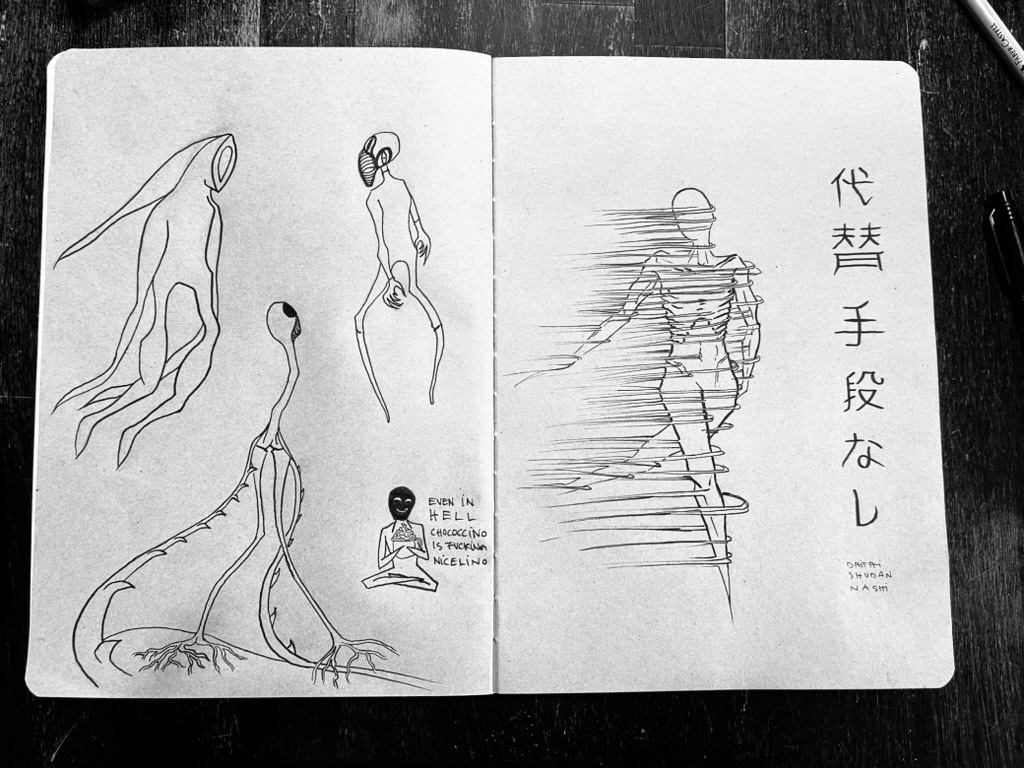 EVEN IN
HELL
CHOCOCCINO
IS FUCKING
NICELINO
代替手段なし
DAITAI
SHUDAN
NASHI
FABER-CASTELL